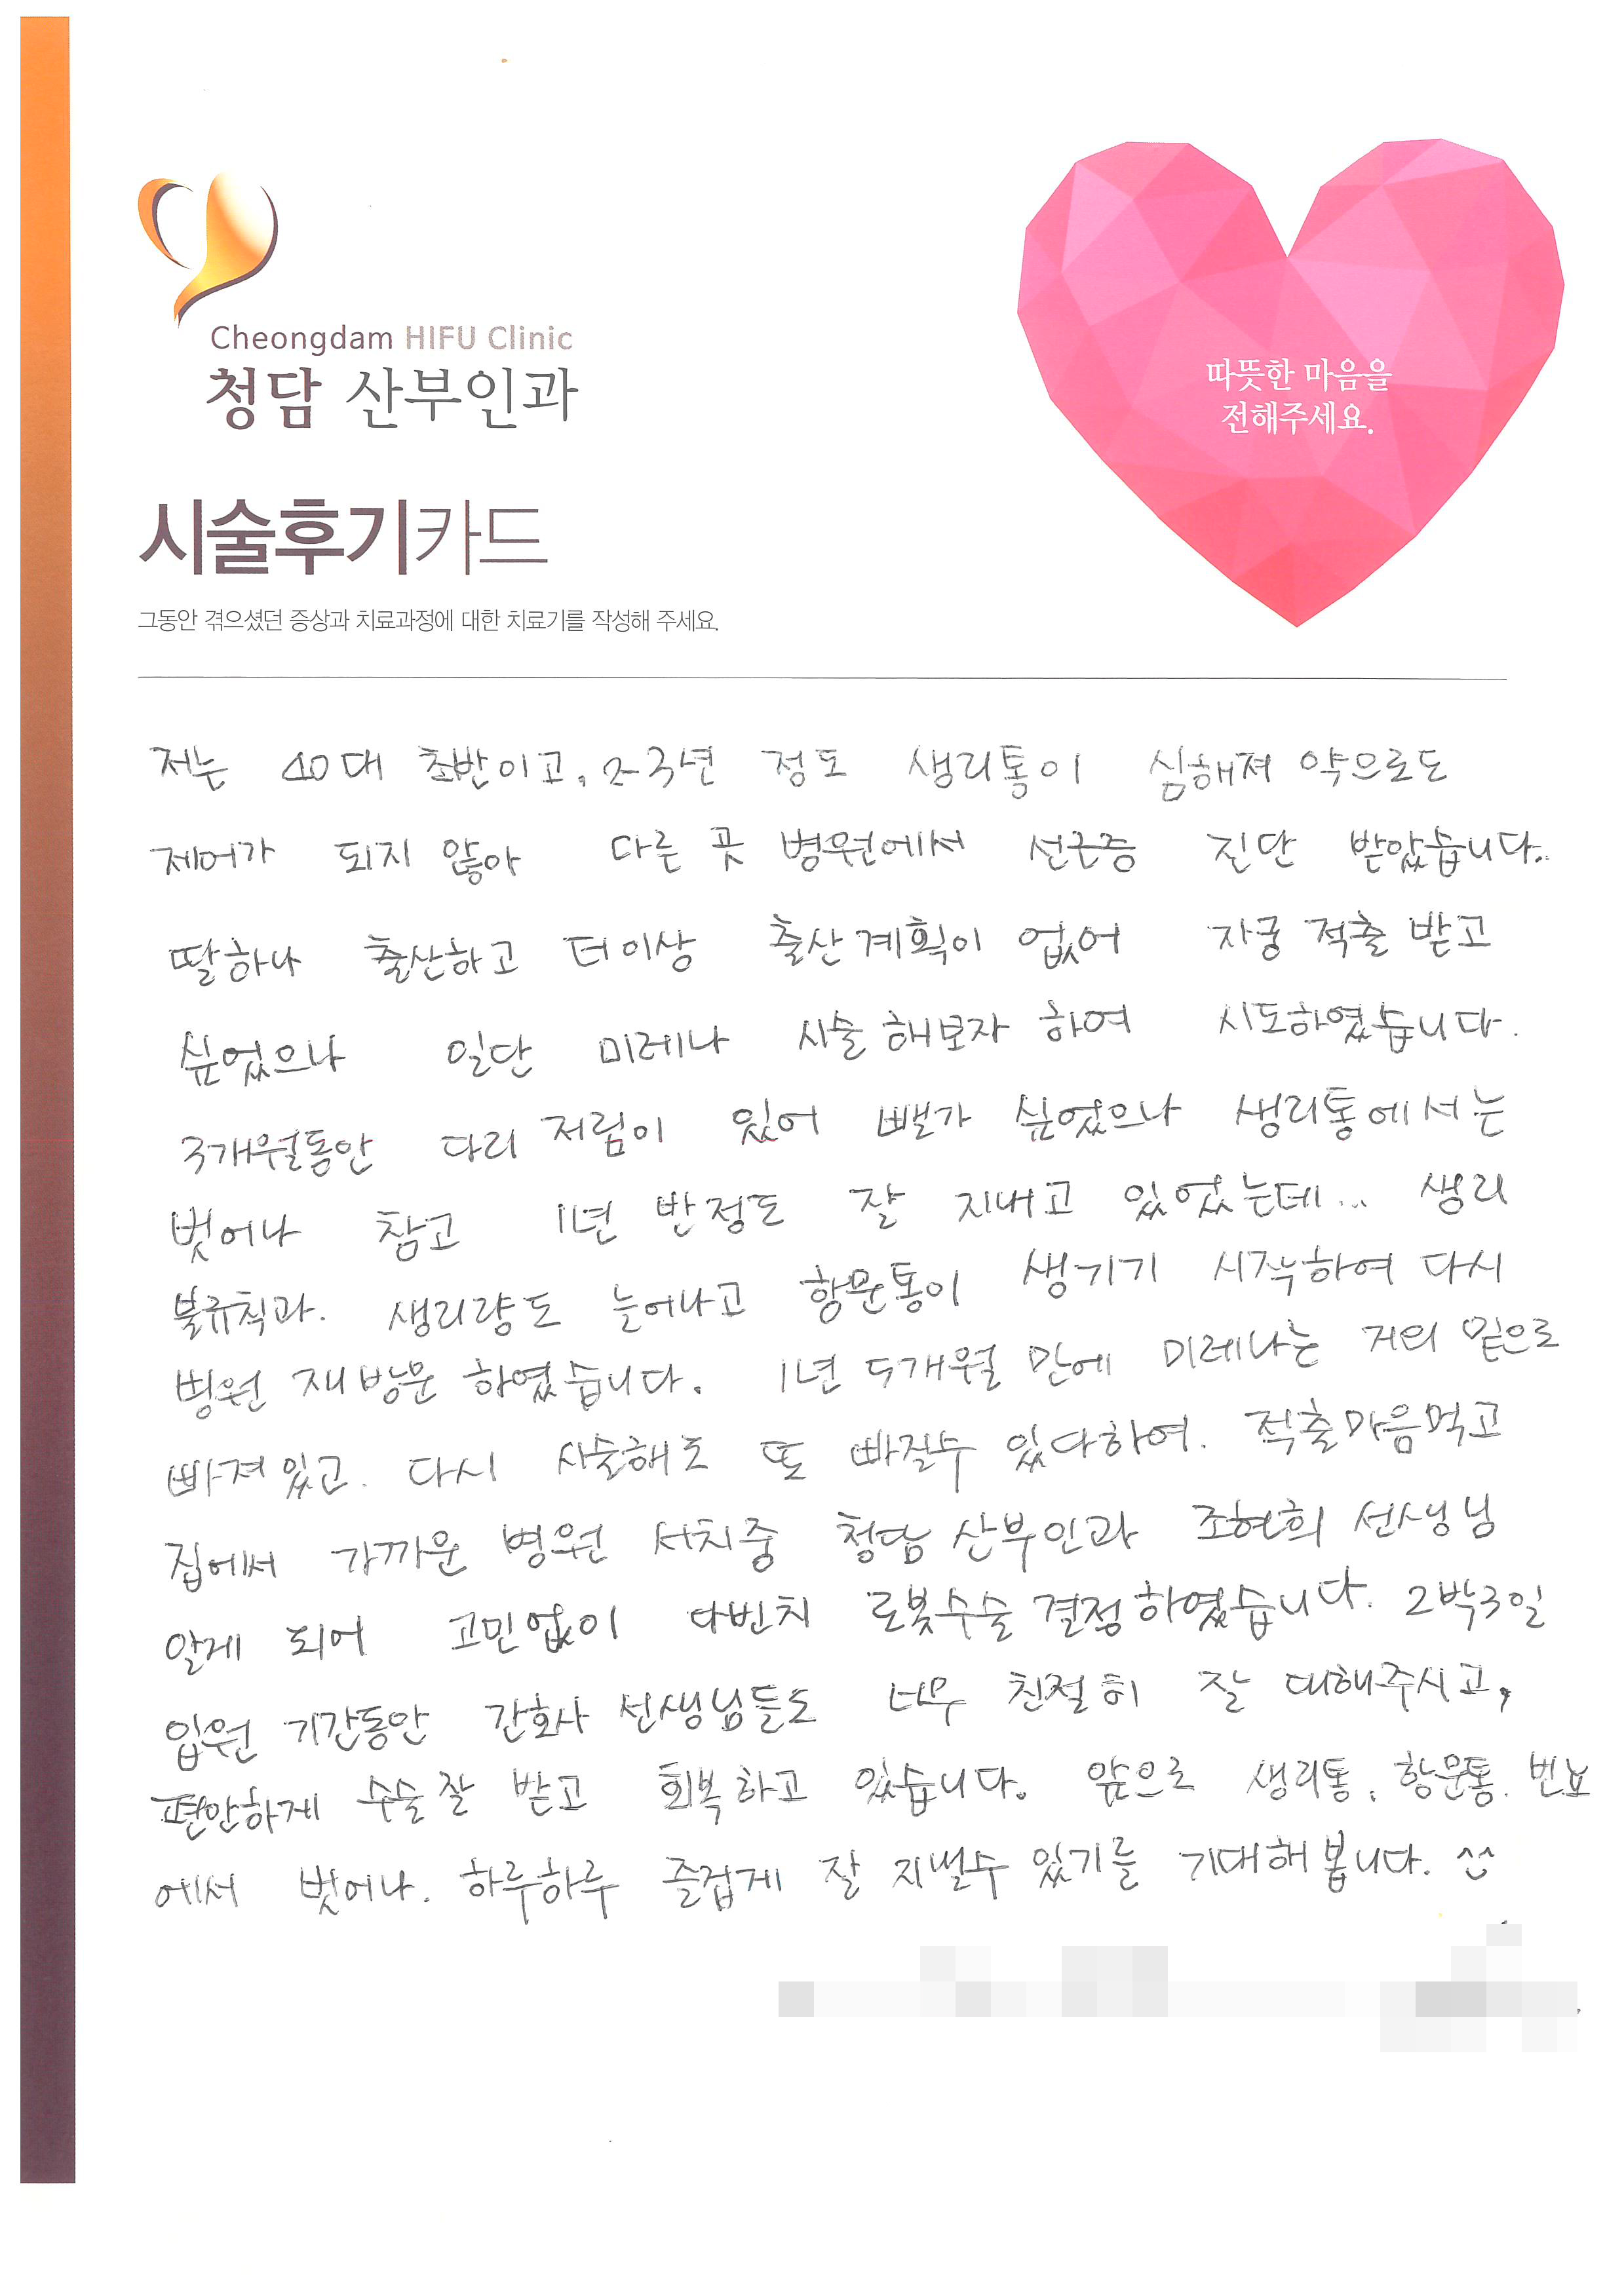 Cheongdam HIFU Clinic
청담 산부인과
따뜻한 마음을
전해주세요.
시술후기카드
그동안 겪으셨던 증상과 치료과정에 대한 치료기를 작성해 주세요.
저는 40대 초반이고, 2-3년 정도 생리통이 심해져 약으로도
제어가 되지 않아 다른 곳 병원에서 선근증 진단 받았습니다.
딸하나 출산하고 더이상 출산계획이 없어 자궁 적출 받고
싶었으나 일단 미레나 시술 해보자 하여 시도하였습니다.
3개월동안 다리 저림이 있어 빼가 싶었으나 생리통에서는
벗어나 참고 1년 반정도 잘 지내고 있었는데... 생리
불규칙과. 생리량도 늘어나고 항문통이 생기기 시작하여 다시
병원 재방문 하였습니다. 1년 5개월 만에 미레나는 거의 밑으로
빠져있고. 다시 시술해도 또 빠질수 있다하여. 적출마음먹고
집에서 가까운 병원 서치중 청담 산부인과 조현희 선생님
알게 되어 고민없이 다빈치 로봇수술 결정하였습니다. 2박3일
입원 기간동안 간호사 선생님들도 너무 친절히 잘 대해주시고,
편안하게 수술잘 받고 회복하고 있습니다. 앞으로 생리통, 항문통. 빈뇨
에서 벗어나. 하루하루 즐겁게 잘 지낼수 있기를 기대해봅니다. ^^